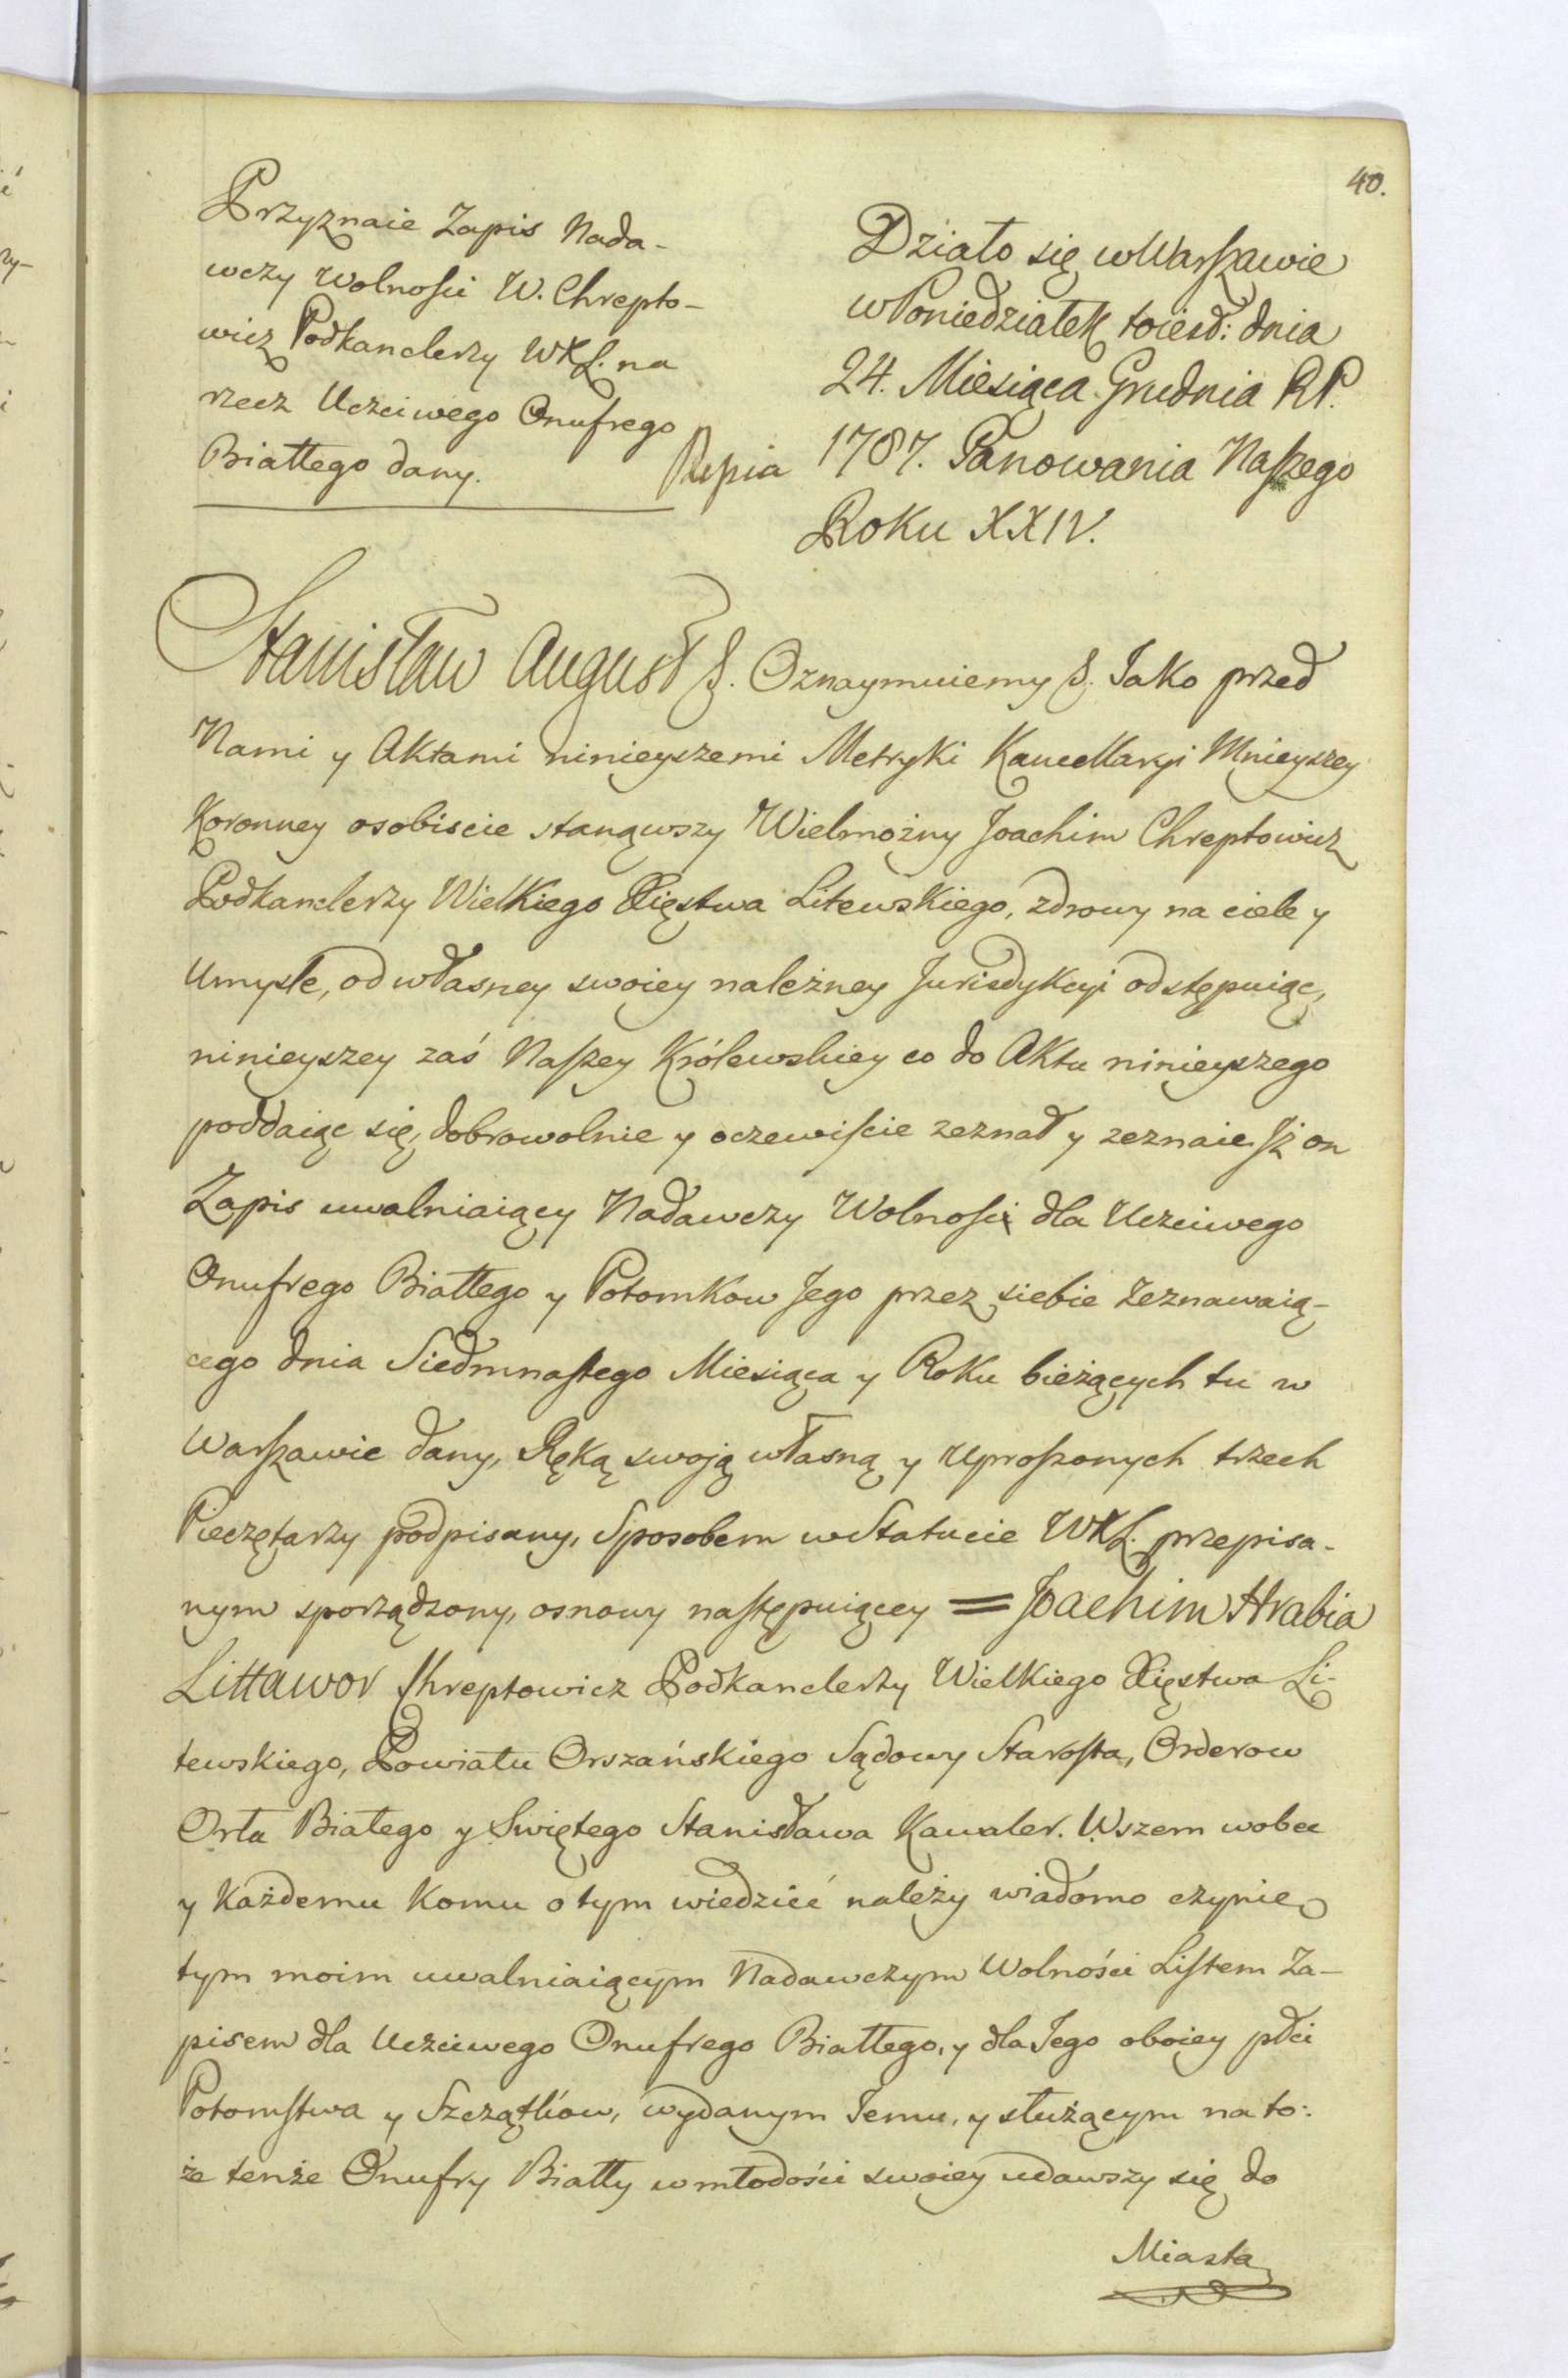 40.
Przyznaie Zapis Nada-
wczy Wolnosci W. Chrepto-
wicz Podkanclerzy WXL. na
rzecz Uczciwego Onufrego
Białłego dany.
Działo się w Warszawie
w Poniedziałek toiesd: dnia
24. Miesiąca Grudnia RP.
1787. Panowania Naszego
Roku XXIV.
Stanisław August &. Oznaymuiemy &. Jako przed
Nami y Aktami ninieyszemi Metryki Kancellaryi Mnieyszey
Koronney osobiscie stanąwszy Wielmożny Joachim Chreptowicz
Podkanclerzy Wielkiego Xięstwa Litewskiego, zdrowy na ciele y
Umysle, od własney swoiey należney Jurisdykcyi odstępuiąc,
ninieyszey zaś Naszey Królewskiey co do Aktu ninieyszego
poddaiąc się, dobrowolnie y oczewiscie zeznał y zeznaie Jż on
Zapis uwalniaiący Nadawczy Wolnosci dla Uczciwego
Onufrego Białłego y Potomkow Jego przez siebie Zeznawaią-
cego dnia Siedmnastego Miesiąca y Roku bieżących tu w
Warszawie dany, Ręką swoją własną y Uproszonych trzech
Pieczętarzy podpisany, Sposobem w Statucie WXL. przepisa-
nym sporządzony, osnowy następuiącey = Joachim Hrabia
Littawor Chreptowicz Podkanclerzy Wielkiego Xięstwa Li-
tewskiego, Powiatu Orszańskiego Sądowy Starosta, Orderow
Orła Białego y Swiętego Stanisława Kawaler. Wszem wobec
y Każdemu Komu o tym wiedzieć należy wiadomo czynię
tym moim uwalniaiącym Nadawczym Wolności Listem Za-
pisem dla Uczciwego Onufrego Białłego, y dla Jego oboiey płci
Potomstwa y Szczątków, wydanym Jemu, y służącym na to:
że tenże Onufry Białły w młodości swoiey udawszy się do
Miasta